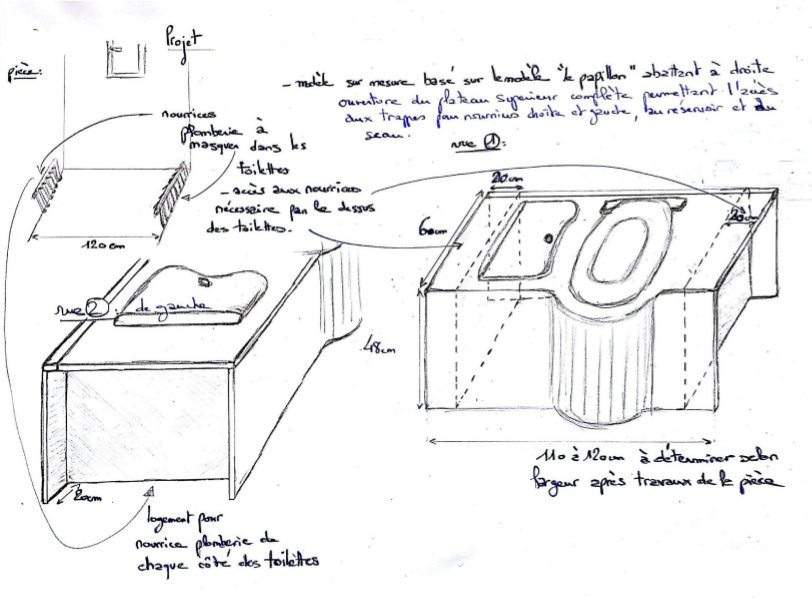 Projet
pièce:
nourrices
plomberie à
masquer dans les
toilettes
- accès aux nourrices
nécessaire par le dessus
des toilettes.
120cm
- modèle sur mesure basé sur le modèle "le papillon" abattant à droite
ouverture du plateau superieur complète permettant l'accès
aux trappes pour nourrices droite et gauche, au réservoir et au
seau.
vue 1:
20cm
60cm
20cm
48cm
110 à 120cm à déterminer selon
largeur après travaux de la pièce
vue 2: de gauche
20cm
logement pour
nourrice plomberie de
chaque côté des toilettes